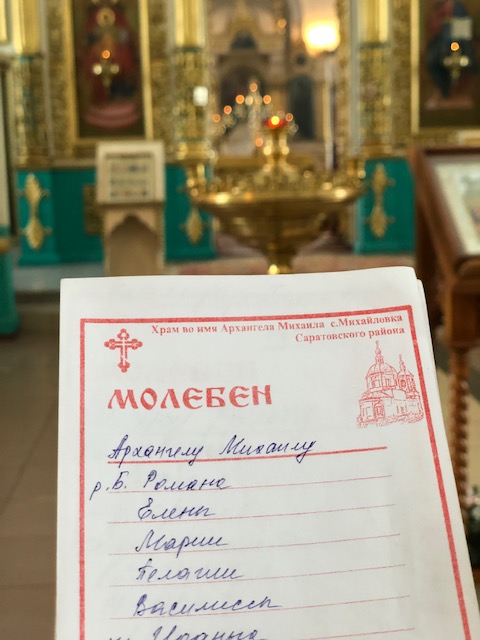 Храм во имя Архангела Михаила с.Михайловка
Саратовского района
МОЛЕБЕН
Архангелу Михаилу
р.Б. Романа
Елены
Марии
Пелагии
Василисы
Иоанна